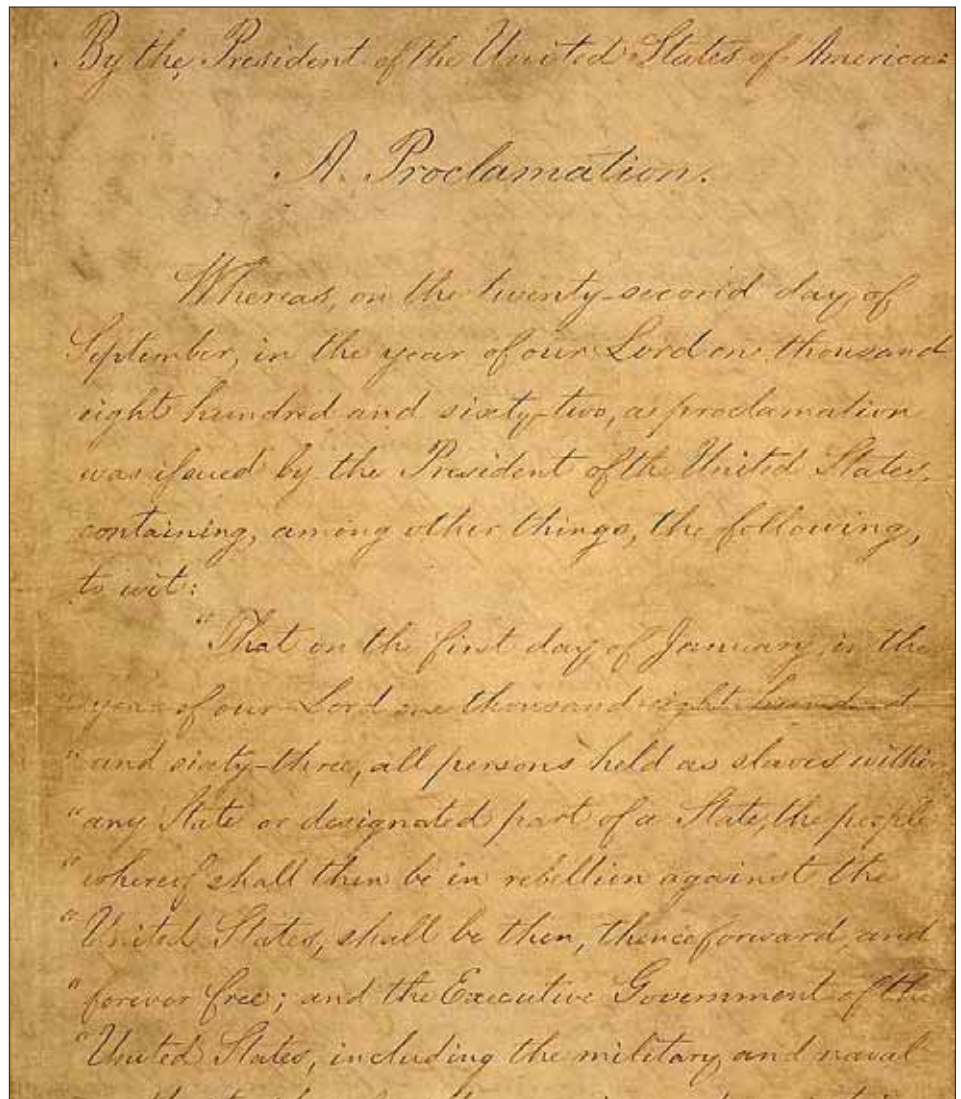 By the President of the United States of America:
A Proclamation.
Whereas, on the twenty-second day of
September, in the year of our Lord one thousand
eight hundred and sixty-two, a proclamation
was issued by the President of the United States,
containing, among other things, the following,
to wit:
"That on the first day of January, in the
"year of our Lord one thousand eight hundred
"and sixty-three, all persons held as slaves within
"any State or designated part of a State, the people
"whereof shall then be in rebellion against the
"United States, shall be then, thenceforward, and
"forever free; and the Executive Government of the
"United States, including the military and naval